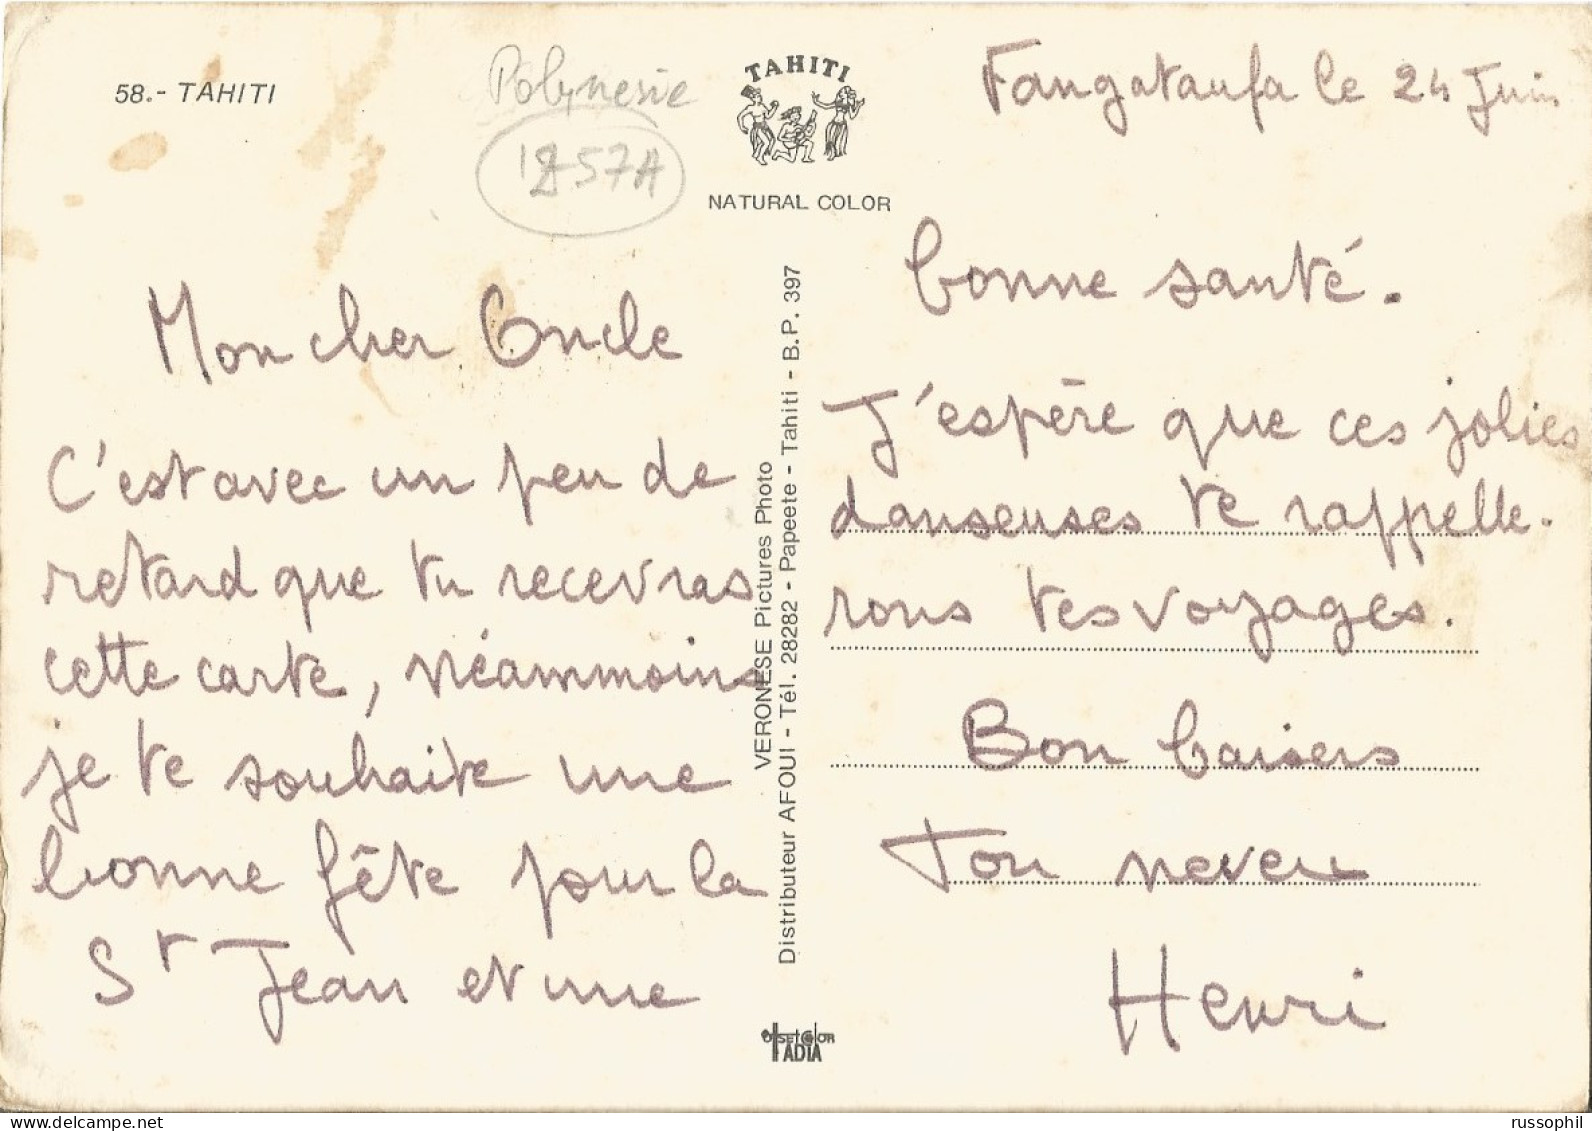 58.- TAHITI
Polynesie
TAHITI
NATURAL COLOR
Fangataufa le 24 Juin
Mon cher Oncle
C'est avec un peu de
retard que tu recevras
cette carte, néammoins
je te souhaite une
bonne fête pour la
St Jean et une
bonne santé.
J'espère que ces jolies
danseuses te rappelle-
rons tes voyages.
Bon baisers
Ton neveu
Henri
VERONESE Pictures Photo
Distributeur AFOUI - Tél. 28282 - Papeete - Tahiti - B.P. 397
OFFSET COLOR
TADIA
russophil